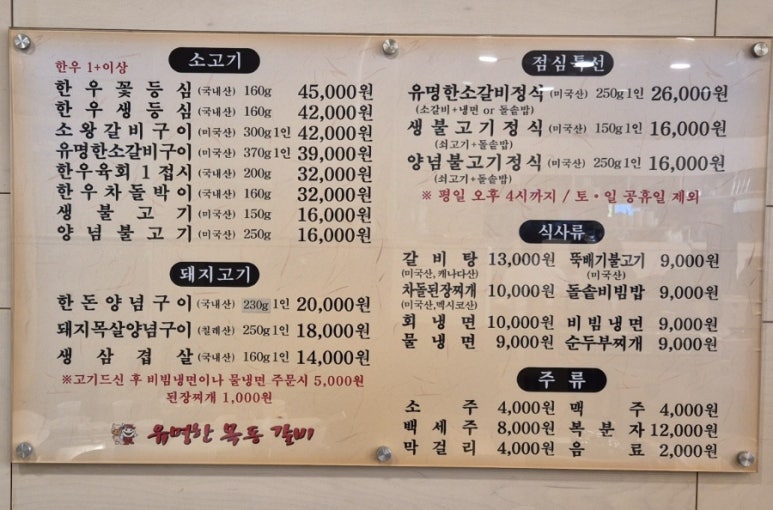 소고기
한우 1+이상
한우꽃등심 (국내산) 160g 45,000원
한우생등심 (국내산) 160g 42,000원
소왕갈비구이 (미국산) 300g1인 42,000원
유명한소갈비구이 (미국산) 370g1인 39,000원
한우육회 1접시 (국내산) 200g 32,000원
한우차돌박이 (국내산) 160g 32,000원
생불고기 (미국산) 150g 16,000원
양념불고기 (미국산) 250g 16,000원
돼지고기
한돈양념구이 (국내산) 230g1인 20,000원
돼지목살양념구이 (칠레산) 250g1인 18,000원
생삼겹살 (국내산) 160g1인 14,000원
※고기드신 후 비빔냉면이나 물냉면 주문시 5,000원
된장찌개 1,000원
유명한 목동 갈비
점심특선
유명한소갈비정식 (미국산) 250g1인 26,000원
(소갈비+냉면 or 돌솥밥)
생불고기정식 (미국산) 150g1인 16,000원
(쇠고기+돌솥밥)
양념불고기정식 (미국산) 250g1인 16,000원
(쇠고기+돌솥밥)
※ 평일 오후 4시까지 / 토·일 공휴일 제외
식사류
갈비탕 13,000원 뚝배기불고기 9,000원
(미국산, 캐나다산) (미국산)
차돌된장찌개 10,000원 돌솥비빔밥 9,000원
(미국산,멕시코산)
회냉면 10,000원 비빔냉면 9,000원
물냉면 9,000원 순두부찌개 9,000원
주류
소주 4,000원 맥주 4,000원
백세주 8,000원 복분자 12,000원
막걸리 4,000원 음료 2,000원